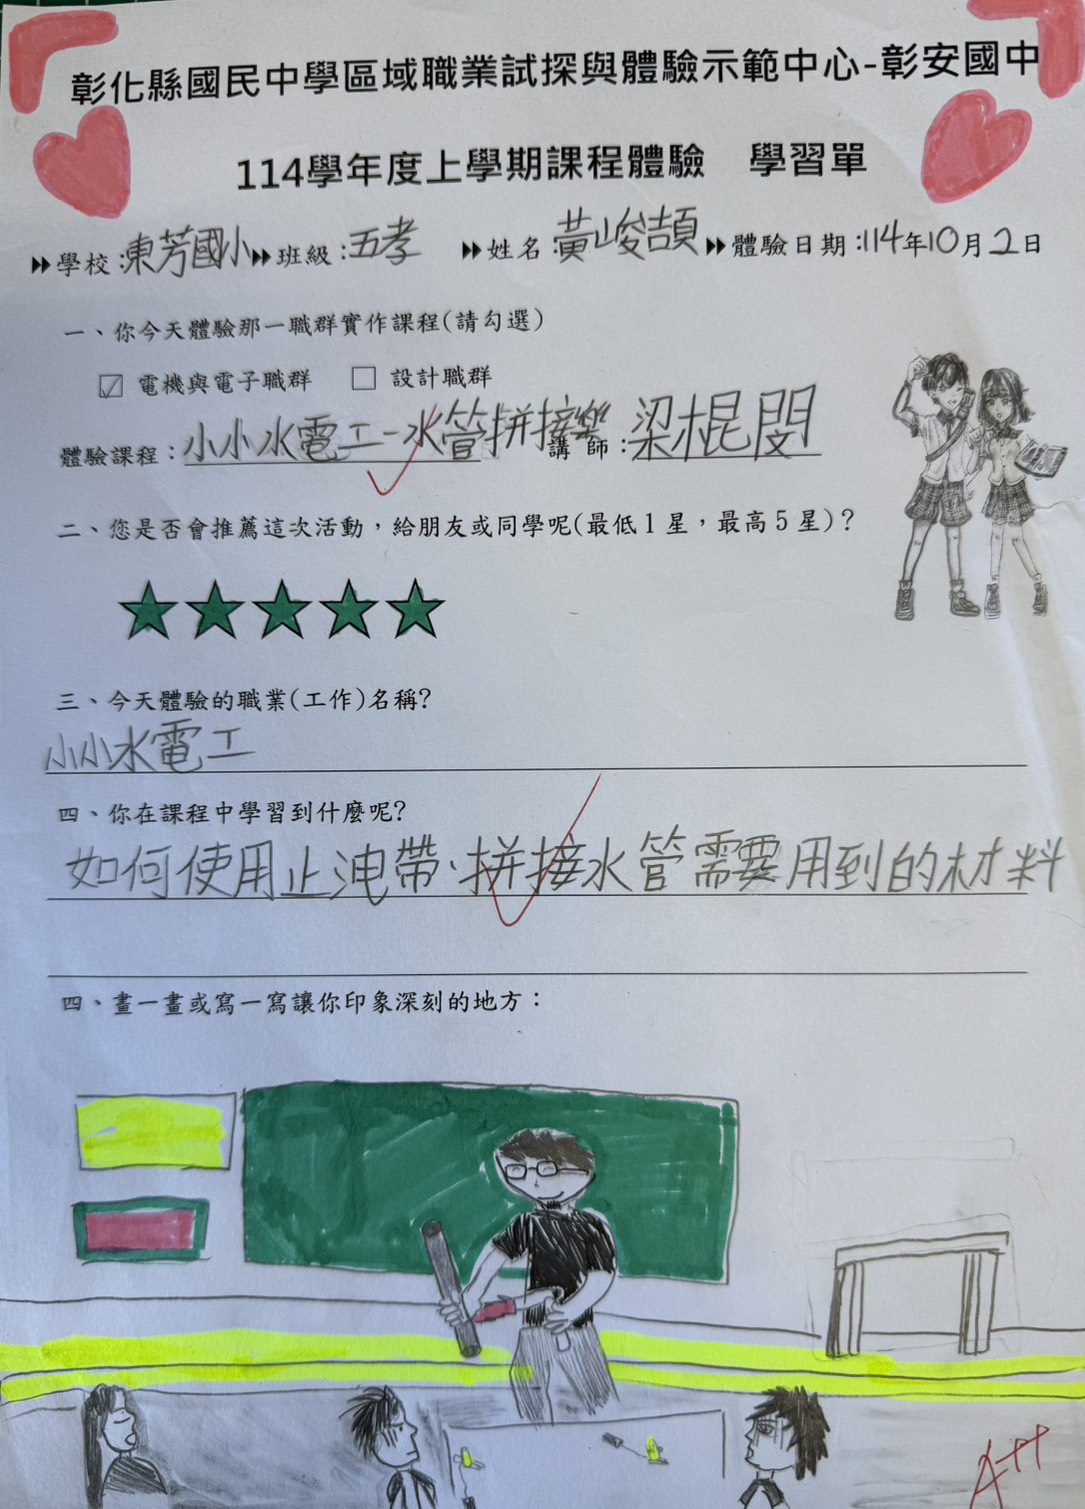 彰化縣國民中學區域職業試探與體驗示範中心-彰安國中
114學年度上學期課程體驗 學習單
學校:東芳國小 班級:五孝 姓名:黃峻頡 體驗日期:114年10月2日
一、你今天體驗那一職群實作課程(請勾選)
☑ 電機與電子職群 □ 設計職群
體驗課程:小小水電工-水管拼接樂 講師:梁棍閔
二、您是否會推薦這次活動,給朋友或同學呢(最低1星,最高5星)?
三、今天體驗的職業(工作)名稱?
小小水電工
四、你在課程中學習到什麼呢?
如何使用止洩帶、拼接水管需要用到的材料
四、畫一畫或寫一寫讓你印象深刻的地方:
A++